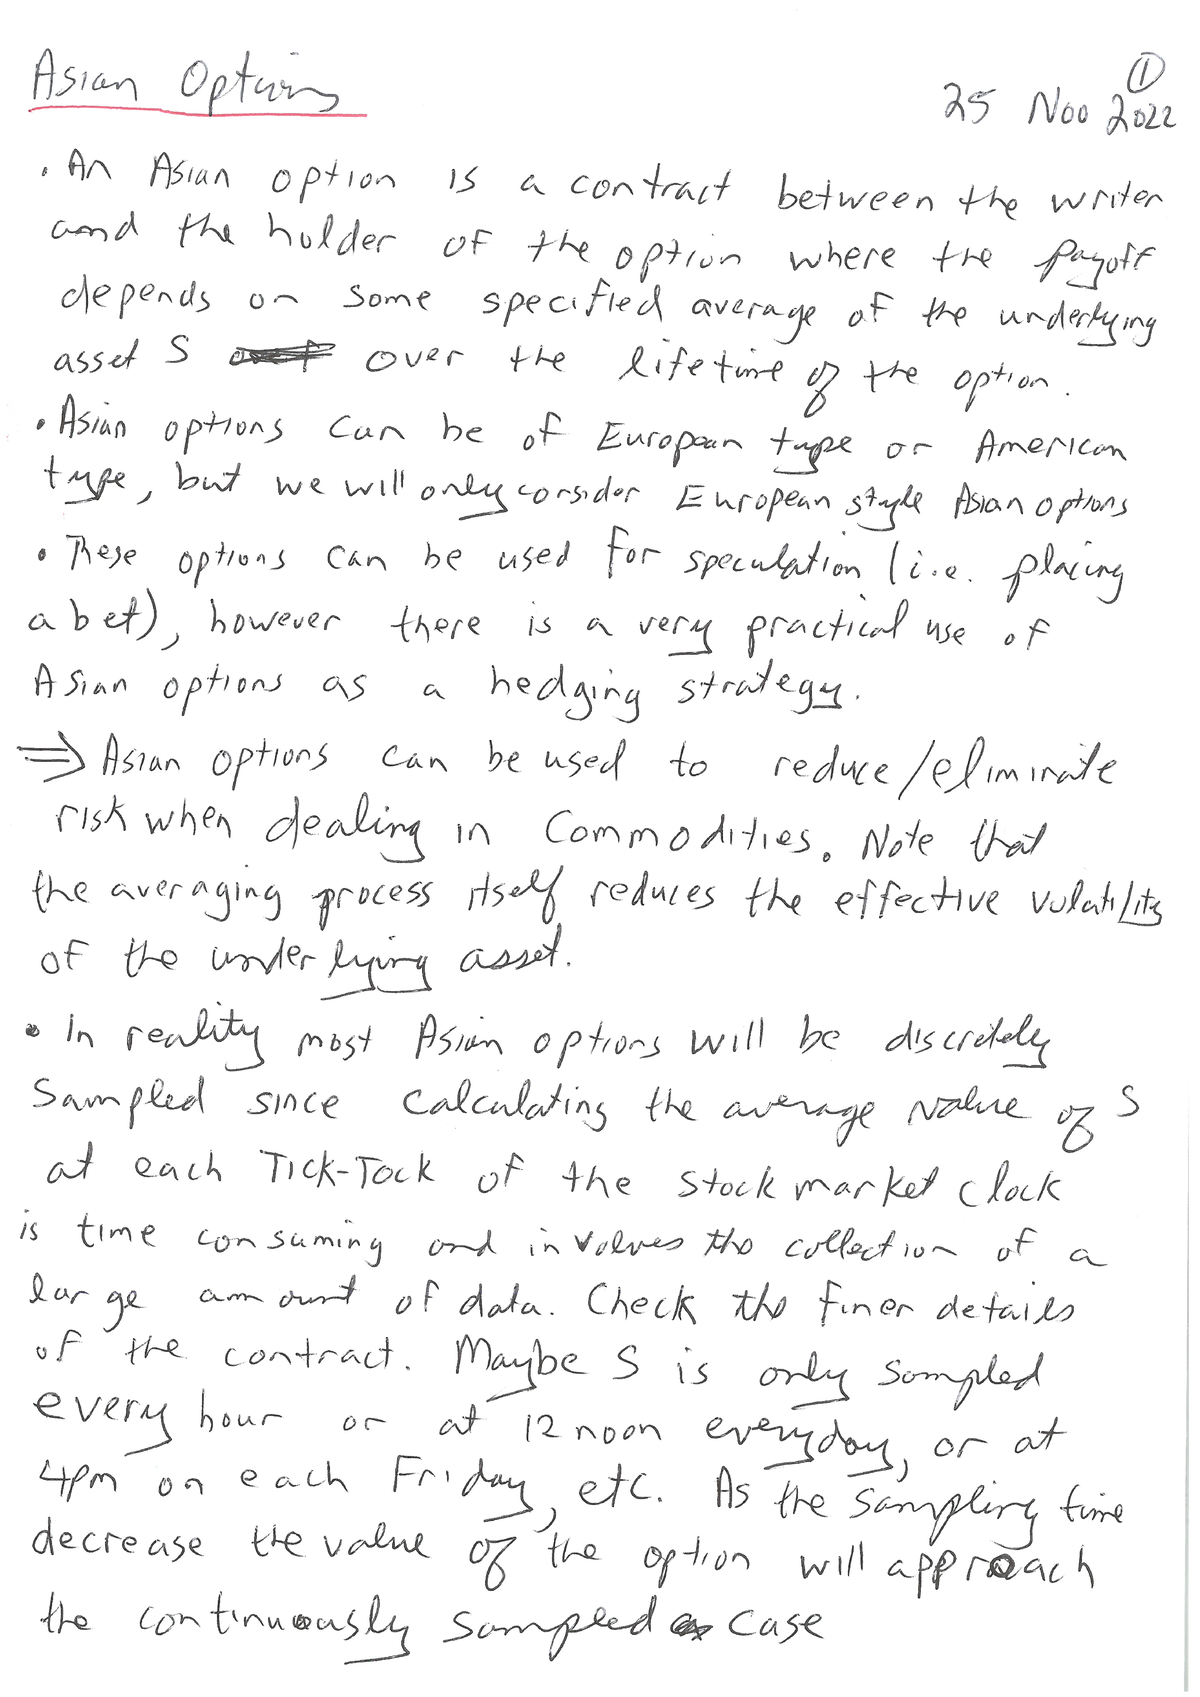 Asian Options
①
25 Nov 2022
• An Asian option is a contract between the writer
and the holder of the option where the payoff
depends on some specified average of the underlying
asset S over the lifetime of the option.
• Asian options can be of European type or American
type, but we will only consider European style Asian options
• These options can be used for speculation (i.e. placing
a bet), however there is a very practical use of
Asian options as a hedging strategy.
⇒ Asian options can be used to reduce/eliminate
risk when dealing in Commodities. Note that
the averaging process itself reduces the effective volatility
of the underlying asset.
• In reality most Asian options will be discretely
Sampled since calculating the average value of S
at each Tick-Tock of the stock market clock
is time consuming and involves the collection of a
large amount of data. Check the finer details
of the contract. Maybe S is only sampled
every hour or at 12 noon everyday, or at
4pm on each Friday, etc. As the sampling time
decrease the value of the option will approach
the continuously sampled case